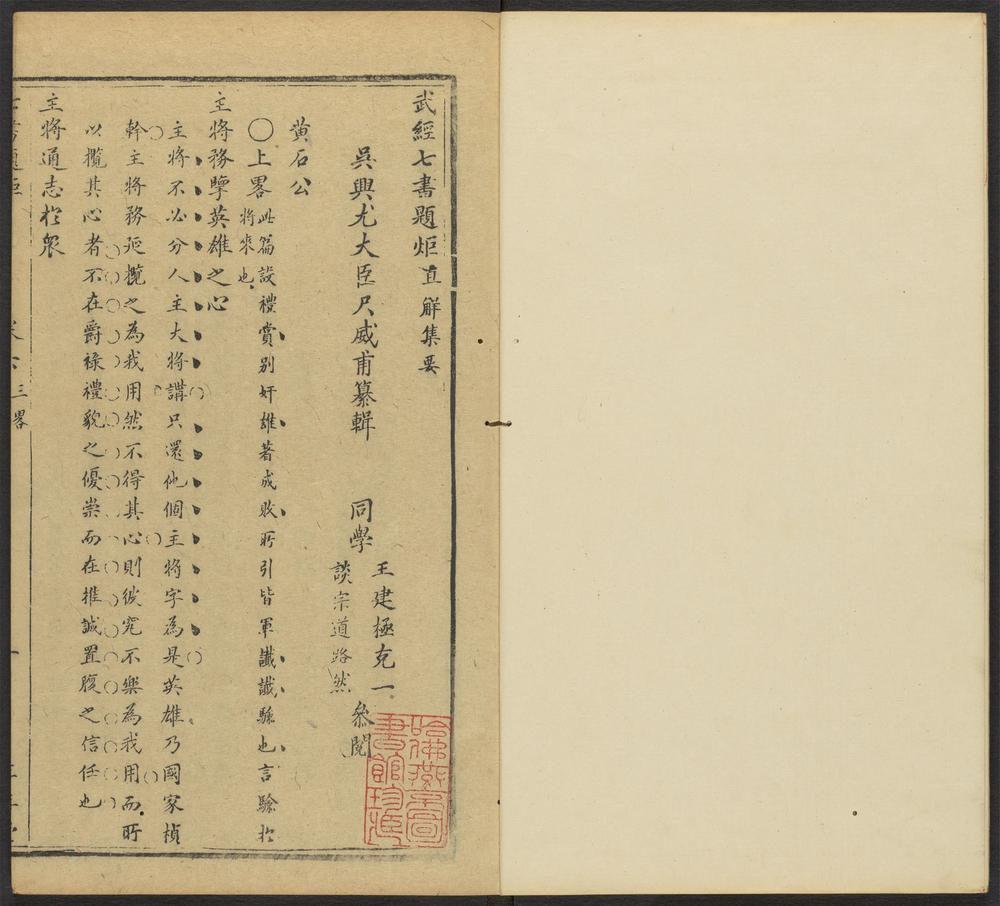 武經七書題炬直解集要
吳興尤大臣尺威甫纂輯
同學
王建極克一
談宗道路然
叅閱
黄石公
〇上畧
此篇設禮賞别奸雄著成敗所引皆軍讖讖驗也言驗於
將來也
主將務擥英雄之心
主將不必分人主大將講只還他個主將字為是英雄乃國家楨
幹主將務延攬之為我用然不得其心則彼究不樂為我用而所
以攬其心者不在爵祿禮貌之優崇而在推誠置腹之信任也
主將通志於衆
三畧
哈佛燕京圖書館珍藏